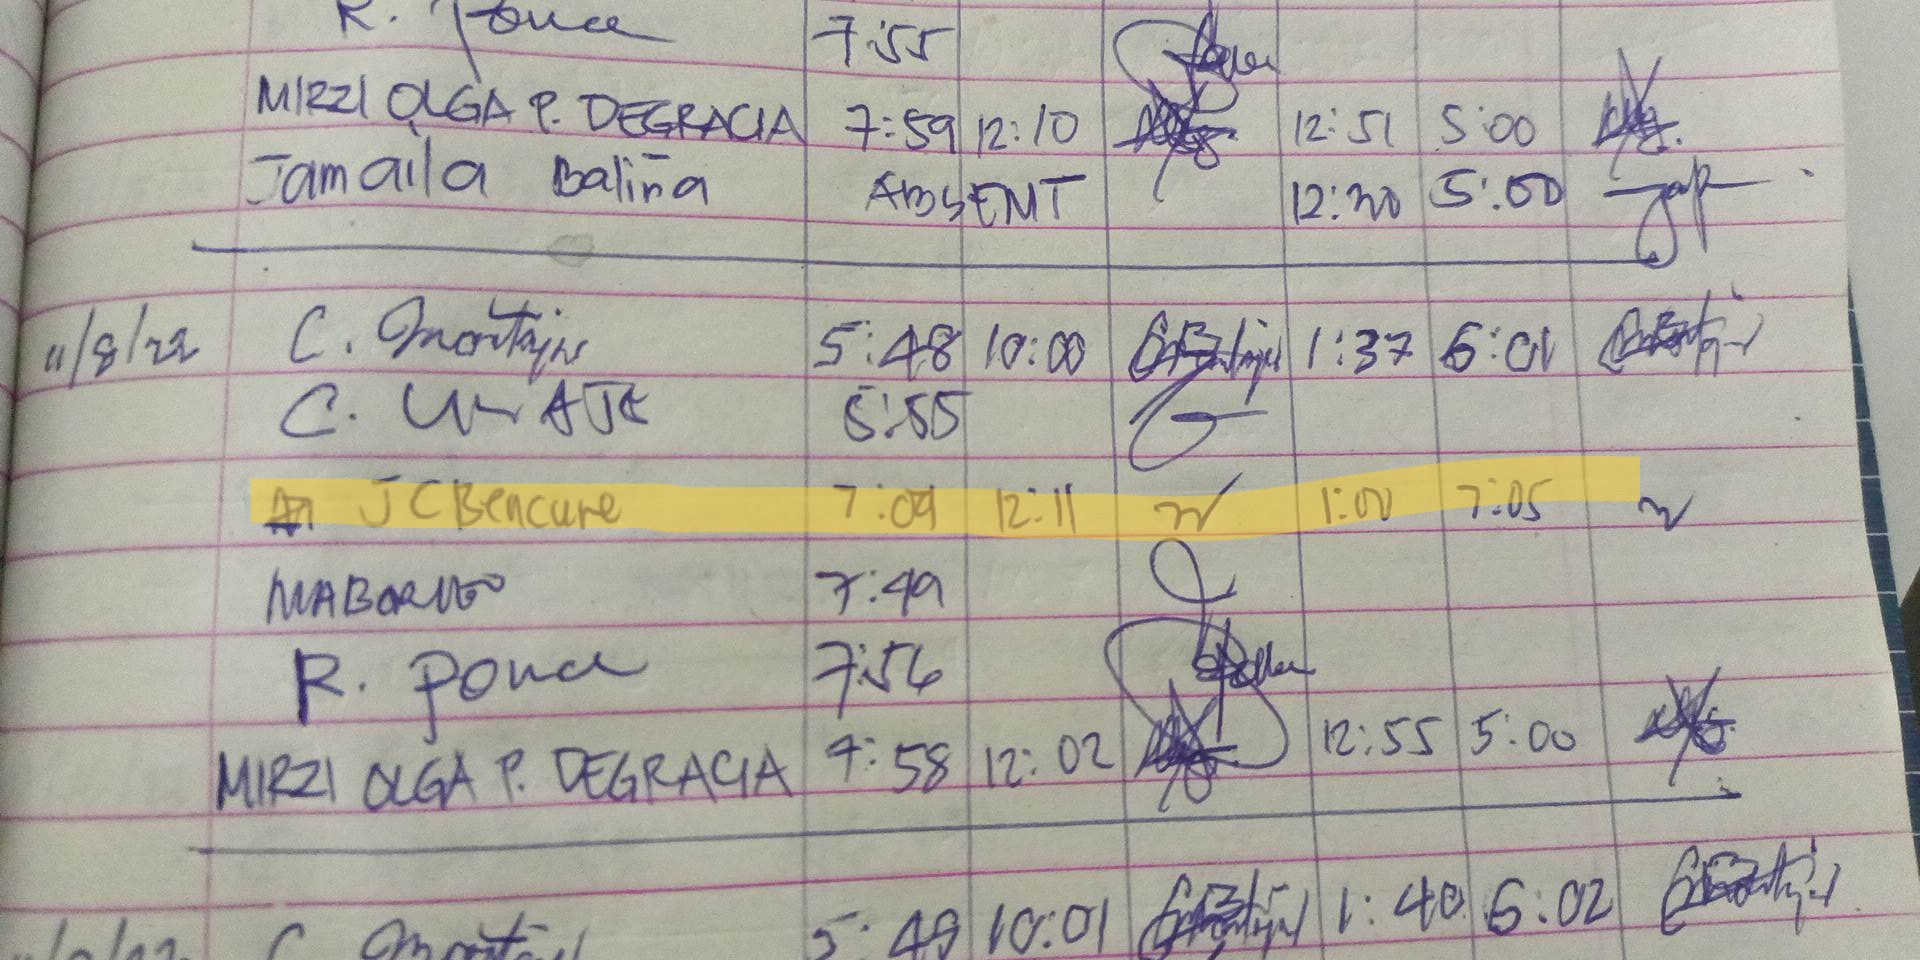 R. Ponce 7:55
MIRZI OLGA P. DEGRACIA 7:59 12:10 12:51 5:00
Jamaila Baliña ABSENT 12:30 5:00
11/8/22 C. Montajes 5:48 10:00 1:37 6:01
C. 5:55
JC Bencure 7:09 12:11 1:00 7:05
7:49
R. Ponce 7:56
MIRZI OLGA P. DEGRACIA 7:58 12:02 12:55 5:00
C. 5:49 10:01 1:40 6:02